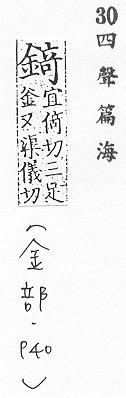 30
四聲篇海
錡宜倚切三足
釜又渠儀切
（金部．P40）